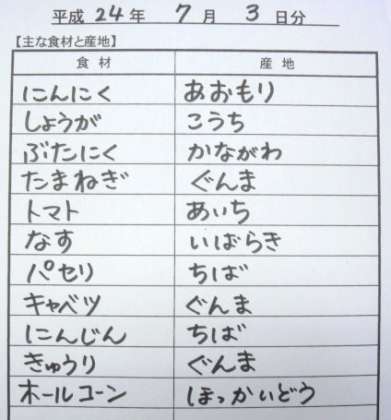 平成 24 年 7 月 3 日分
【主な食材と産地】
食 材 産 地
にんにく あおもり
しょうが こうち
ぶたにく かながわ
たまねぎ ぐんま
トマト あいち
なす いばらき
パセリ ちば
キャベツ ぐんま
にんじん ちば
きゅうり ぐんま
ホールコーン ほっかいどう